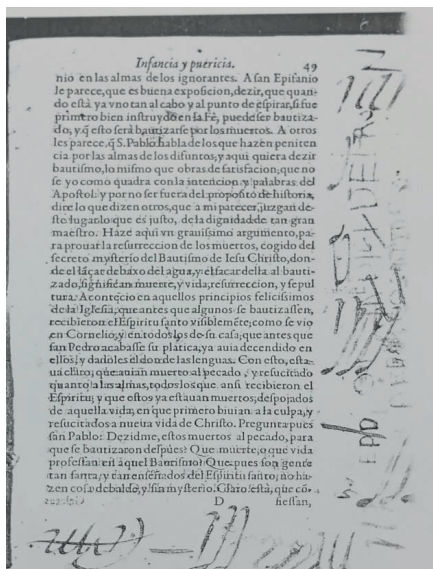 Infancia y puericia. 49
nio en las almas de los ignorantes. A san Epifanio
le parece, que es buena exposicion, dezir, que quan-
do està ya vno tan al cabo y al punto de espirar, si fue
primero bien instruydo en la Fè, puede ser bautiza-
do, y q̃ esto serà bautizarse por los muertos. A otros
les parece, q̃ S. Pablo habla de los que hazen peniten
cia por las almas de los difuntos, y aqui quiera dezir
bautismo, lo mismo que obras de satisfacion, que no
se yo como quadra con la intencion y palabras del
Apostol: y por no ser fuera del proposito de historia,
dire lo que dizen otros, que a mi parecer, juzgan de-
ste lugar lo que es justo, de la dignidad de tan gran
maestro. Haze aqui vn grauissimo argumento, pa-
ra prouar la resurreccion de los muertos, cogido del
secreto mysterio del Bautismo de Iesu Christo, don-
de el lãçar debaxo del agua, y el sacar della al bauti-
zado, significan muerte, y vida, resurreccion, y sepul
tura. Acontecio en aquellos principios felicissimos
de la Iglesia, que antes que algunos se bautizassen,
recibieron el Espiritu santo visiblemẽte, como se vio
en Cornelio, y en todos los de su casa, que antes que
san Pedro acabasse su platica, ya auia decendido en
ellos, y dadoles el don de las lenguas. Con esto, esta-
ua claro, que auian muerto al pecado, y resucitado
quanto a las almas, todos los que ansi recibieron el
Espiritu, y que estos ya estauan muertos, despojados
de aquella vida, en que primero biuian a la culpa, y
resucitados a nueua vida de Christo. Pregunta pues
san Pablo: Dezidme, estos muertos al pecado, para
que se bautizaron despues? Que muerte, o que vida
professan en aquel Bautismo? Que pues son gente
tan santa, y tan enseñados del Espiritu santo, no ha-
zen cosa debalde, y sin mysterio. Claro està, que cõ-
D fiessan,